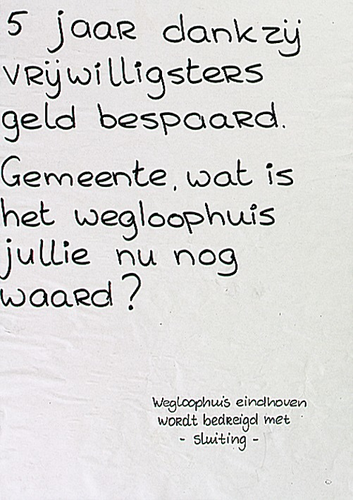 5 jaar dankzij
vrijwilligsters
geld bespaard.
Gemeente, wat is
het wegloophuis
jullie nu nog
waard?
Wegloophuis eindhoven
wordt bedreigd met
- sluiting -